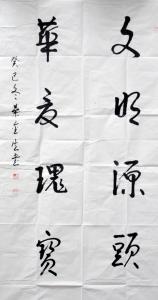 文明源頭
華夏瑰寶
癸巳冬